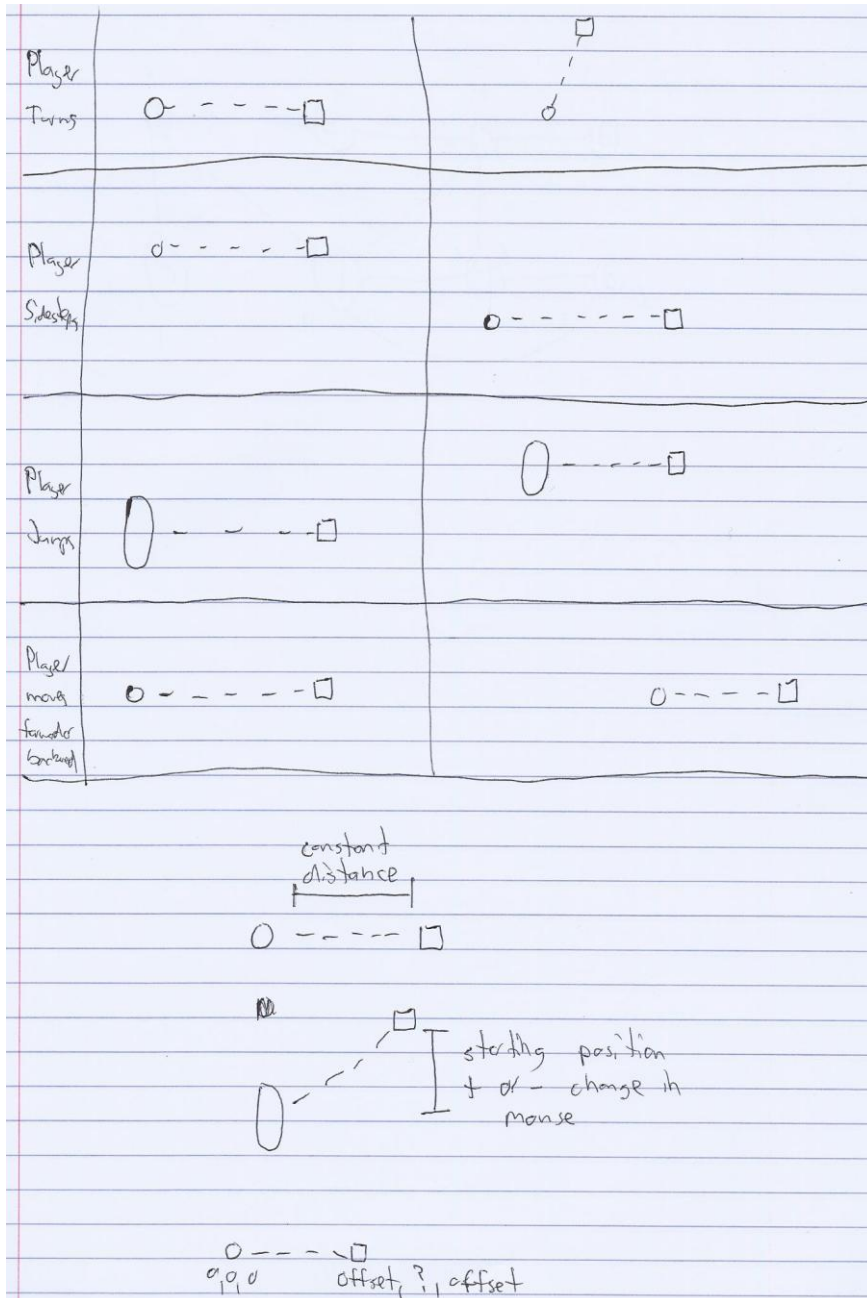 Player
Turns
Player
Sidesteps
Player
Jumps
Player
moves
forward or
backward
constant
distance
starting position
+ or - change in
mouse
0,0,0 offset, ?, offset